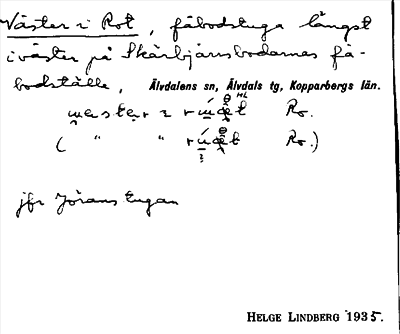 Väster i Rot, fäbodstuga längst
i väster på Skärbjärnsbodarnas fä-
bodställe, Älvdalens sn, Älvdals tg, Kopparbergs län.
Ro.
( " " Ro.)
jfr Jörans Eugan
HELGE LINDBERG 1935.